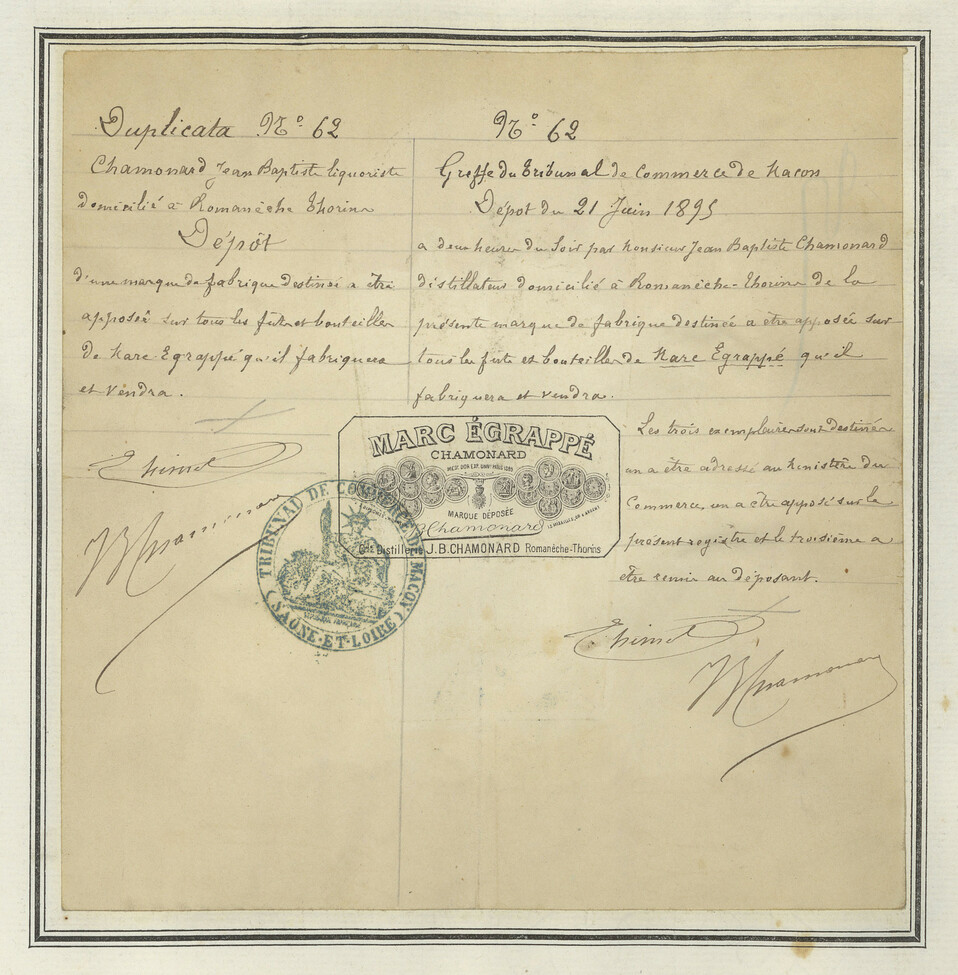 Duplicata No. 62
Chamonard Jean Baptiste liquoriste
domicilié à Romanèche Thorins
Dépôt
d'une marque de fabrique destinée a être
apposée sur tous les fûts et bouteilles
de Marc Egrappé qu'il fabriquera
et vendra.
JBChamonard
No. 62
Greffe du Tribunal de Commerce de Macon
Dépot du 21 Juin 1895
a deux heures du Soir par Monsieur Jean Baptiste Chamonard
distillateur domicilié à Romanèche-Thorins de la
présente marque de fabrique destinée a être apposée sur
tous les fûts et bouteilles de Marc Égrappé qu'il
fabriquera et vendra.
Les trois exemplaires sont destinés
un a être adressé au Ministère du
Commerce, un a être apposé sur le
présent registre et le troisième a
être remis au déposant.
JBChamonard
MARC ÉGRAPPÉ
CHAMONARD
MED. D'OR EXP. UNIV. PARIS 1889
MARQUE DÉPOSÉE
JBChamonard
Gde Distillerie J.B.CHAMONARD Romanèche-Thorins
TRIBUNAL DE COMMERCE DE MACON
(SAONE-ET-LOIRE)